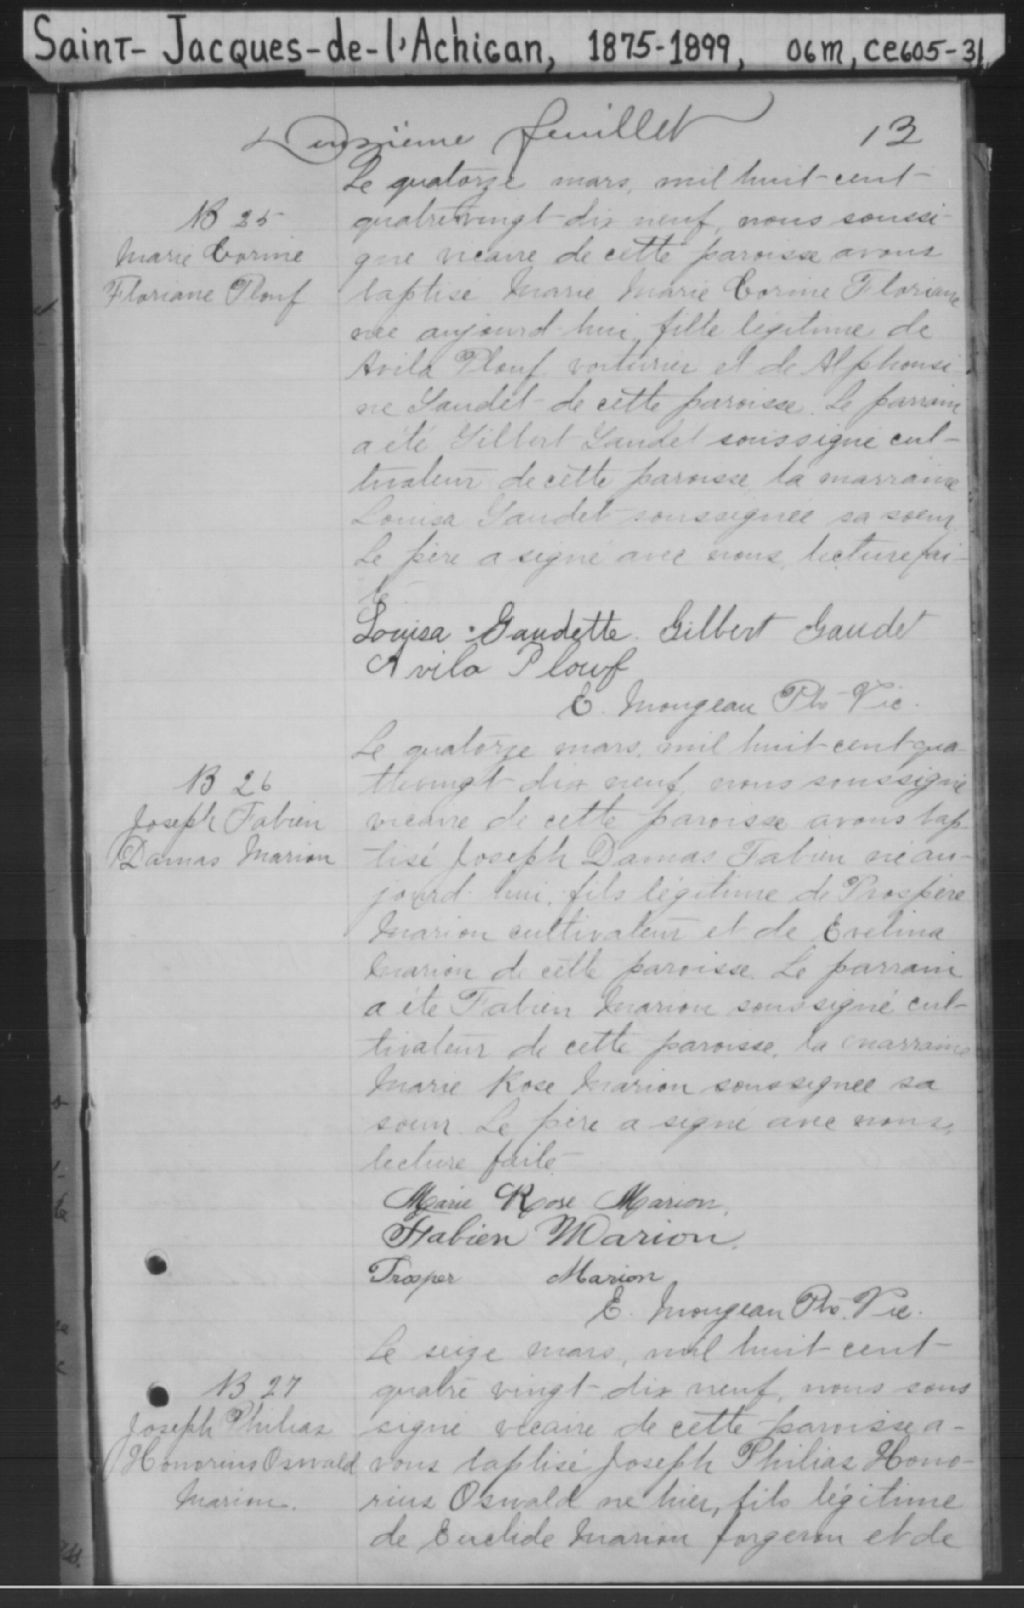 Saint-Jacques-de-l'Achigan, 1875-1899, 06M, CE605-31
Deuxième feuillet 13
Le quatorze mars, mil huit-cent-
quatrevingt-dix neuf, nous soussi-
gné vicaire de cette paroisse avons
baptisé Marie Marie Corine Floriane
née aujourd'hui, fille légitime de
Avila Plouf voiturier et de Alphonsi-
ne Gaudet de cette paroisse. Le parrain
a été Gilbert Gaudet soussigné cul-
tivateur de cette paroisse, la marraine
Louisa Gaudet soussignée sa soeur.
Le père a signé avec nous, lecture fai-
te
Louisa Gaudette. Gilbert Gaudet
Avila Plouf
E. Mongeau Ptr Vic.
B 25
Marie Corine
Floriane Plouf
Le quatorze mars, mil huit-cent-qua-
trevingt-dix neuf, nous soussigné
vicaire de cette paroisse avons bap-
tisé Joseph Damas Fabien né au-
jourd'hui, fils légitime de Prospère
Marion cultivateur et de Evelina
Marion de cette paroisse. Le parrain
a été Fabien Marion soussigné cul-
tivateur de cette paroisse, la marraine
Marie Rose Marion soussignée sa
soeur. Le père a signé avec nous,
lecture faite
Marie Rose Marion.
Fabien Marion.
Prosper Marion
E. Mongeau Ptr. Vic.
B 26
Joseph Fabien
Damas Marion
Le seize mars, mil huit-cent-
quatre vingt-dix neuf, nous sous
signé vicaire de cette paroisse a-
vons baptisé Joseph Philias Hono-
rius Oswald né hier, fils légitime
de Euclide Marion forgeron et de
B 27
Joseph Philias
Honorius Oswald
Marion.